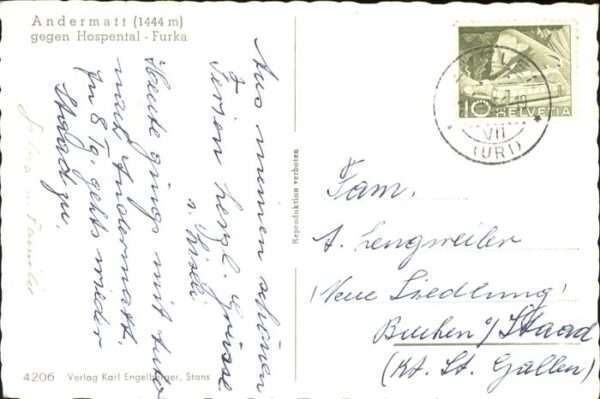 Andermatt (1444 m)
gegen Hospental - Furka
Aus meinen schönen
Ferien herzl. Grüsse
Heute gings mit Auto
nach Andermatt.
In 8 Tg. gehts wieder
Staad zu.
Reproduktion verboten
10 HELVETIA
VII
(URI)
Fam.
A. Lengweiler
(Neue Siedlung)
Buchen / Staad
(Kt. St. Gallen)
4206 Verlag Karl Engelberger, Stans